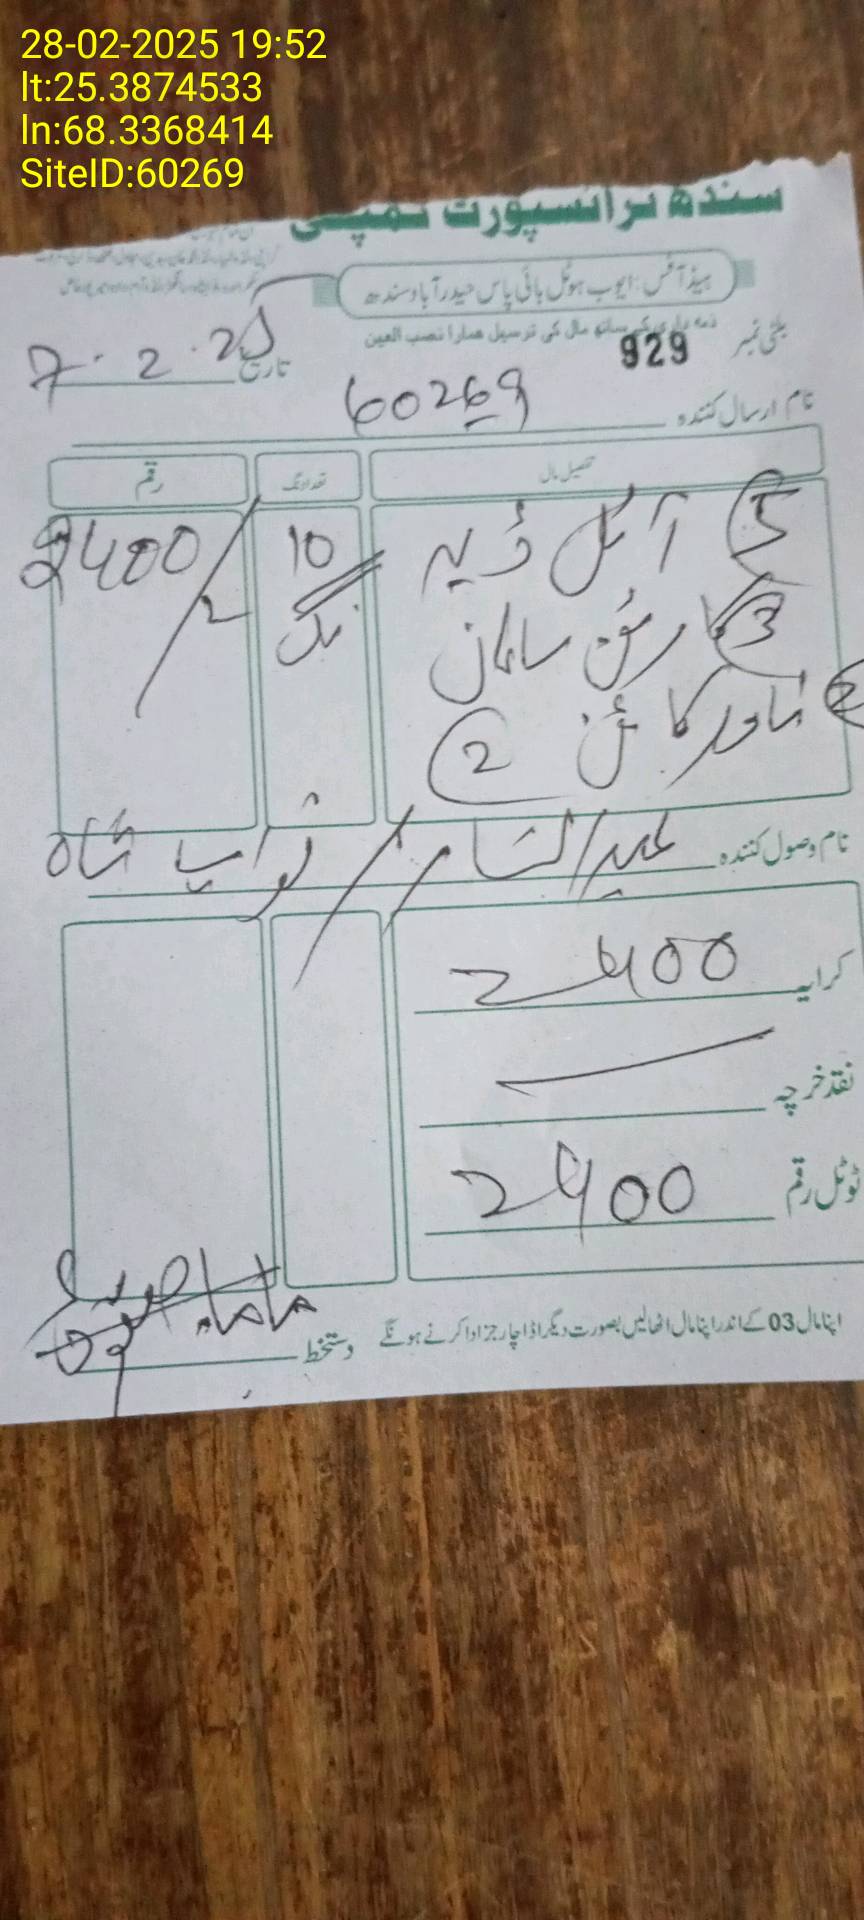 28-02-2025 19:52
lt:25.3874533
ln:68.3368414
SiteID:60269
سندھ ٹرانسپورٹ کمپنی
ہیڈ آفس: ایوب ہوٹل ہائی پاس حیدرآباد سندھ
ذمہ داری کے ساتھ مال کی ترسیل ہمارا نصب العین
بلٹی نمبر 929
تاریخ 7.2.25
نام ارسال کنندہ 60269
تفصیل مال تعداد نگ رقم
5 آئل ڈبہ 10 نگ 2400/
3 سامان
2
نام وصول کنندہ عبدالستار / نواب شاہ
کرایہ 2400
نقد خرچہ
ٹوٹل رقم 2400
اپنا مال 03 کے اندر اپنا مال اٹھالیں بصورت دیگر اڈا چارجز ادا کرنے ہونگے
دستخط